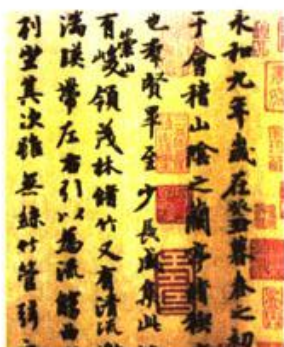 永和九年歲在癸丑暮春之初
于會稽山陰之蘭亭脩禊
也群賢畢至少長咸集此
有崇山峻領茂林脩竹又有清流激
湍暎帶左右引以為流觴曲
列坐其次雖無絲竹管弦